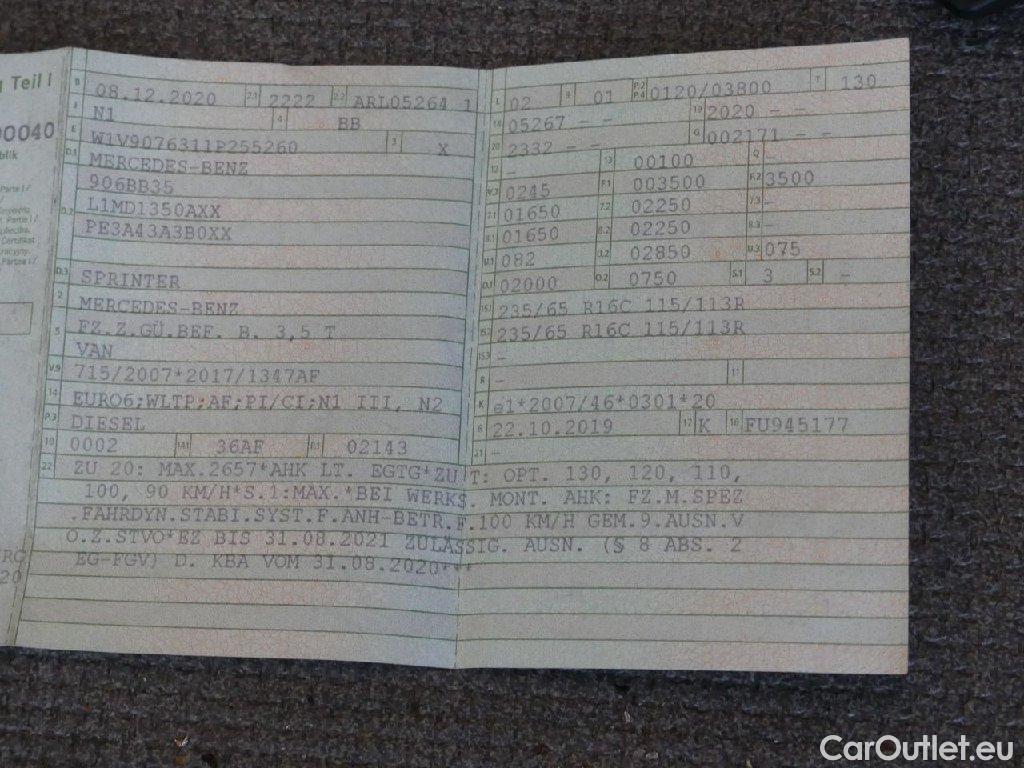 Teil I
00040
B 08.12.2020 2.1 2222 2.2 ARL05264 1
J N1 4 BB
E W1V9076311P255260 3 X
D.1 MERCEDES-BENZ
906BB35
D.2 L1MD1350AXX
PE3A43A3B0XX
D.3 SPRINTER
2 MERCEDES-BENZ
5 FZ.Z.GÜ.BEF. B. 3,5 T
VAN
V.9 715/2007*2017/1347AF
14 EURO6;WLTP;AF;PI/CI;N1 III, N2
P.3 DIESEL
10 0002 14.1 36AF P.1 02143
22 ZU 20: MAX.2657*AHK LT. EGTG*ZU T: OPT. 130, 120, 110,
100, 90 KM/H*S.1:MAX.*BEI WERKS. MONT. AHK: FZ.M.SPEZ
.FAHRDYN.STABI.SYST.F.ANH-BETR.F.100 KM/H GEM.9.AUSN.V
O.Z.STVO*EZ BIS 31.08.2021 ZULÄSSIG. AUSN. (§ 8 ABS. 2
EG-FGV) D. KBA VOM 31.08.2020***
L 02 9 01 P.2 P.4 0120/03800 T 130
18 05267 - - 19 2020 - -
20 2332 - - G 002171 - -
12 - 13 00100 Q -
V.7 0245 F.1 003500 F.2 3500
7.1 01650 7.2 02250 7.3 -
8.1 01650 8.2 02250 8.3 -
U.1 082 U.2 02850 U.3 075
O.1 02000 O.2 0750 S.1 3 S.2 -
15.1 235/65 R16C 115/113R
15.2 235/65 R16C 115/113R
15.3 -
R - 11
K e1*2007/46*0301*20
6 22.10.2019 17 K 16 FU945177
21 -
CarOutlet.eu